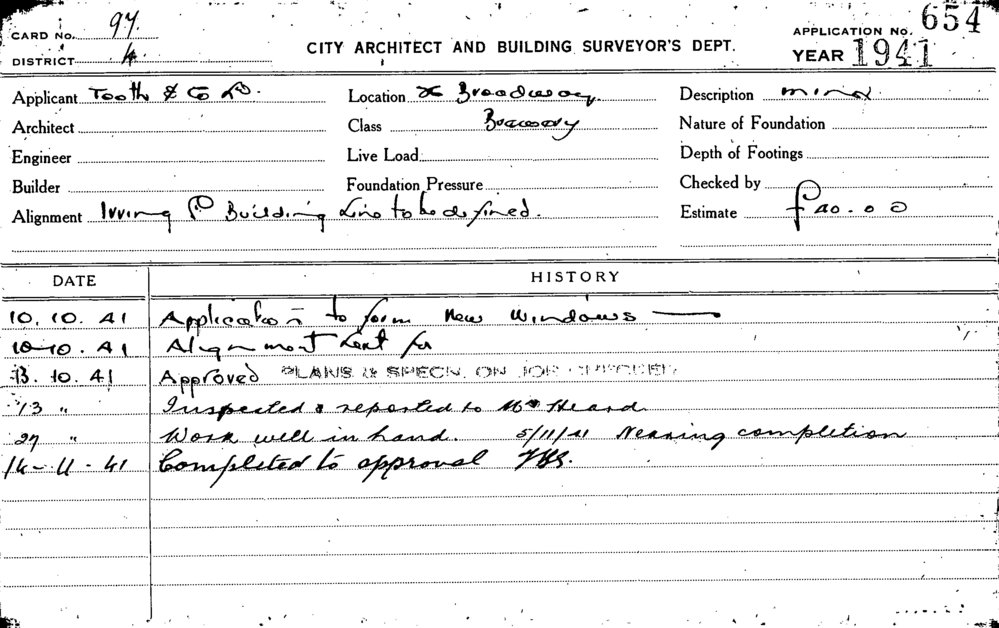 CARD No. 97.
DISTRICT 4.
CITY ARCHITECT AND BUILDING SURVEYOR'S DEPT.
APPLICATION No. 654
YEAR 1941
Applicant Tooth & Co Ld. Location Broadway Description minor
Architect Class Brewery Nature of Foundation
Engineer Live Load Depth of Footings
Builder Foundation Pressure Checked by
Alignment Irving Building Line to be defined. Estimate £40.0.0
DATE HISTORY
10.10.41 Application to form New Windows
10-10.41 Alignment sent for
13.10.41 Approved PLANS & SPECN. ON JOB CHECKED
13 " Inspected & reported to Mr Heard.
27 " Work well in hand. 5/11/41 Nearing completion
14-11-41 Completed to approval